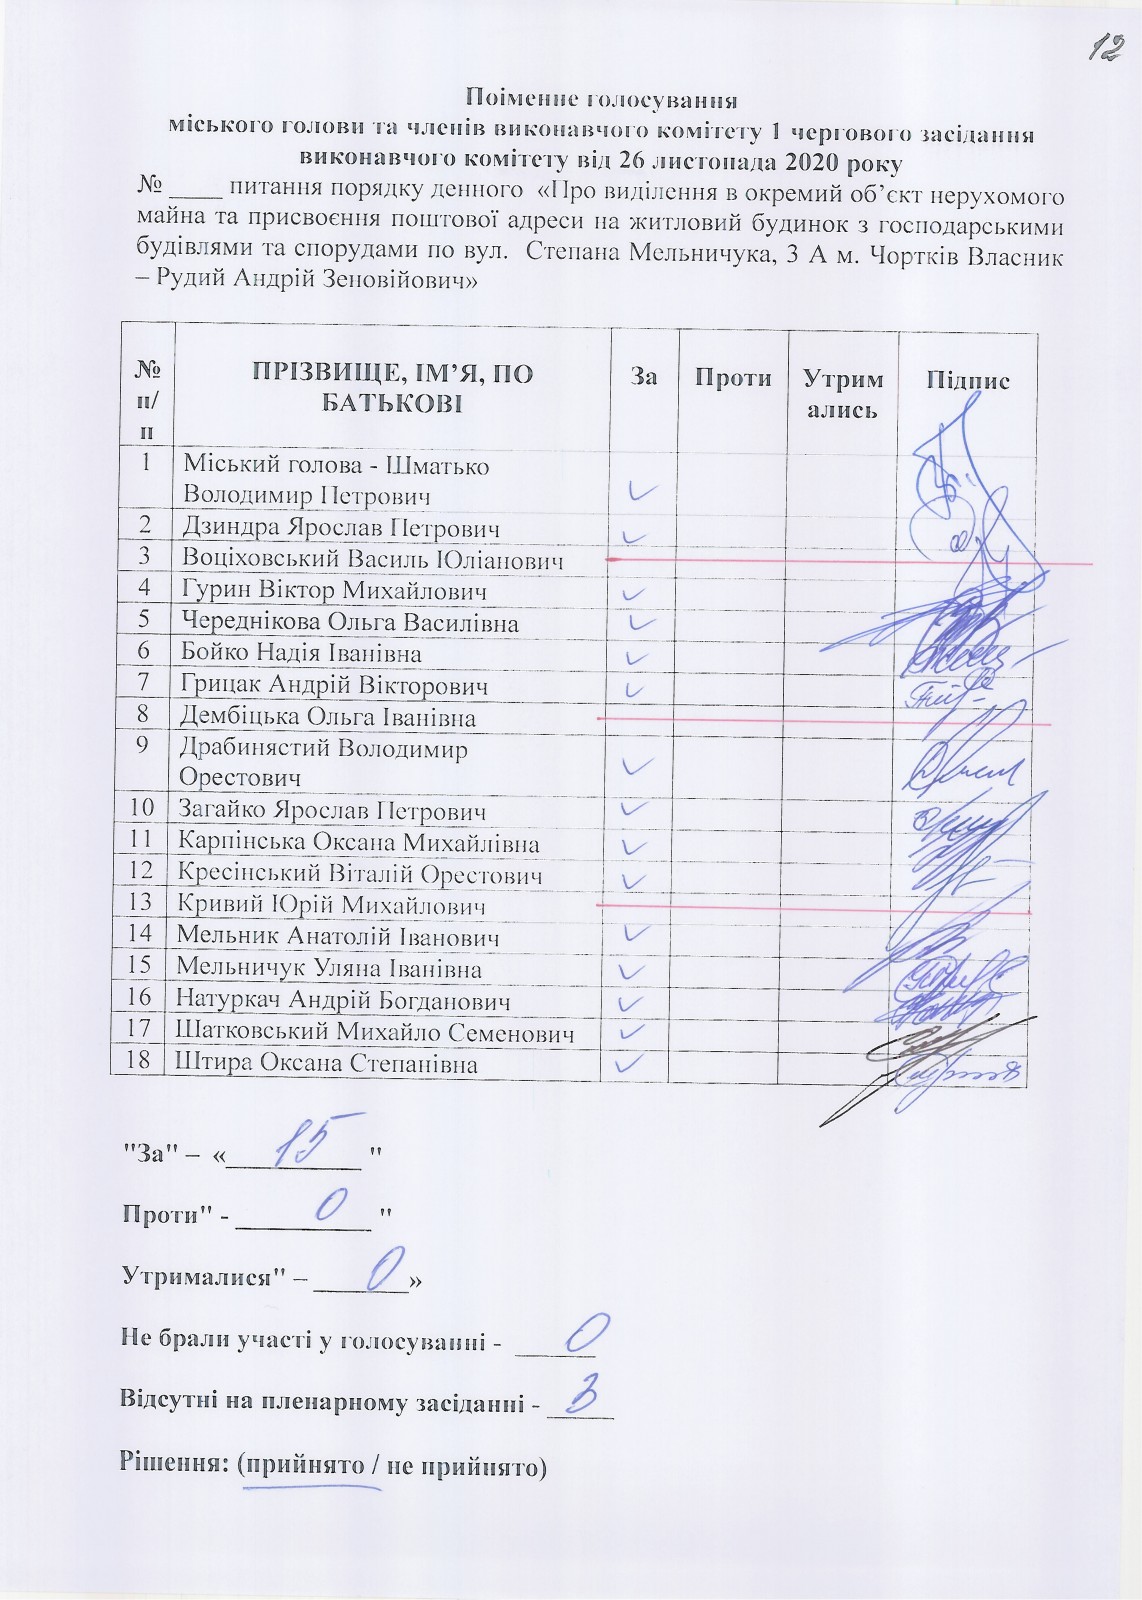 12
Поіменне голосування
міського голови та членів виконавчого комітету 1 чергового засідання
виконавчого комітету від 26 листопада 2020 року
№ ____ питання порядку денного «Про виділення в окремий об’єкт нерухомого
майна та присвоєння поштової адреси на житловий будинок з господарськими
будівлями та спорудами по вул. Степана Мельничука, 3 А м. Чортків Власник
– Рудий Андрій Зеновійович»
№ п/п ПРІЗВИЩЕ, ІМ’Я, ПО БАТЬКОВІ За Проти Утримались Підпис
1 Міський голова - Шматько
Володимир Петрович ✓
2 Дзиндра Ярослав Петрович ✓
3 Воціховський Василь Юліанович
4 Гурин Віктор Михайлович ✓
5 Череднікова Ольга Василівна ✓
6 Бойко Надія Іванівна ✓
7 Грицак Андрій Вікторович ✓
8 Дембіцька Ольга Іванівна
9 Драбинястий Володимир
Орестович ✓
10 Загайко Ярослав Петрович ✓
11 Карпінська Оксана Михайлівна ✓
12 Кресінський Віталій Орестович ✓
13 Кривий Юрій Михайлович
14 Мельник Анатолій Іванович ✓
15 Мельничук Уляна Іванівна ✓
16 Натуркач Андрій Богданович ✓
17 Шатковський Михайло Семенович ✓
18 Штира Оксана Степанівна ✓
"За" – «____15____ "
Проти" - ____0____ "
Утрималися" – ____0____»
Не брали участі у голосуванні - ____0____
Відсутні на пленарному засіданні - ____3____
Рішення: (прийнято / не прийнято)